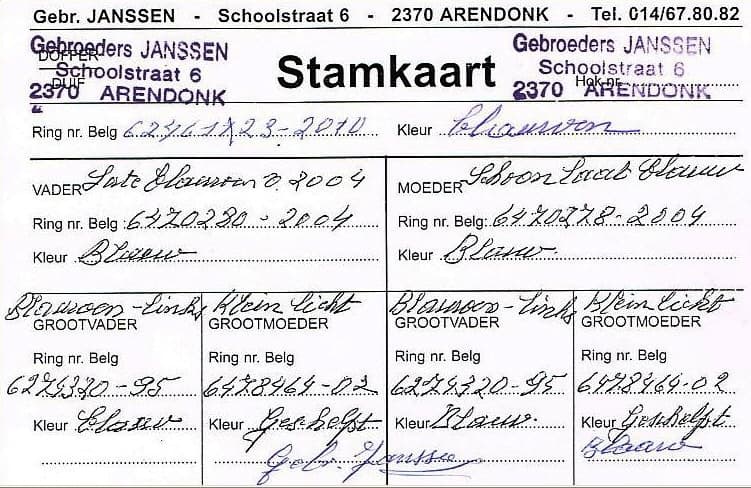 Gebr. JANSSEN - Schoolstraat 6 - 2370 ARENDONK - Tel. 014/67.80.82
Gebroeders JANSSEN
Schoolstraat 6
2370 ARENDONK
DOFFER
DUIF
Stamkaart
Gebroeders JANSSEN
Schoolstraat 6
2370 ARENDONK
Hok nr.
Ring nr. Belg -2010 Kleur
VADER 2004
Ring nr. Belg : 6470280-2004
Kleur Blauw
MOEDER Schoon Laat Blauw
Ring nr. Belg: 6470278-2004
Kleur Blauw.
Blauwen-links
GROOTVADER
Ring nr. Belg
6274320-95
Kleur blauw
Klein licht
GROOTMOEDER
Ring nr. Belg
6478464-02
Kleur Geschelpt
Blauwen-links
GROOTVADER
Ring nr. Belg
6274320-95
Kleur Blauw.
Klein licht
GROOTMOEDER
Ring nr. Belg
6478464-02
Kleur Geschelpt
Gebr. Janssen